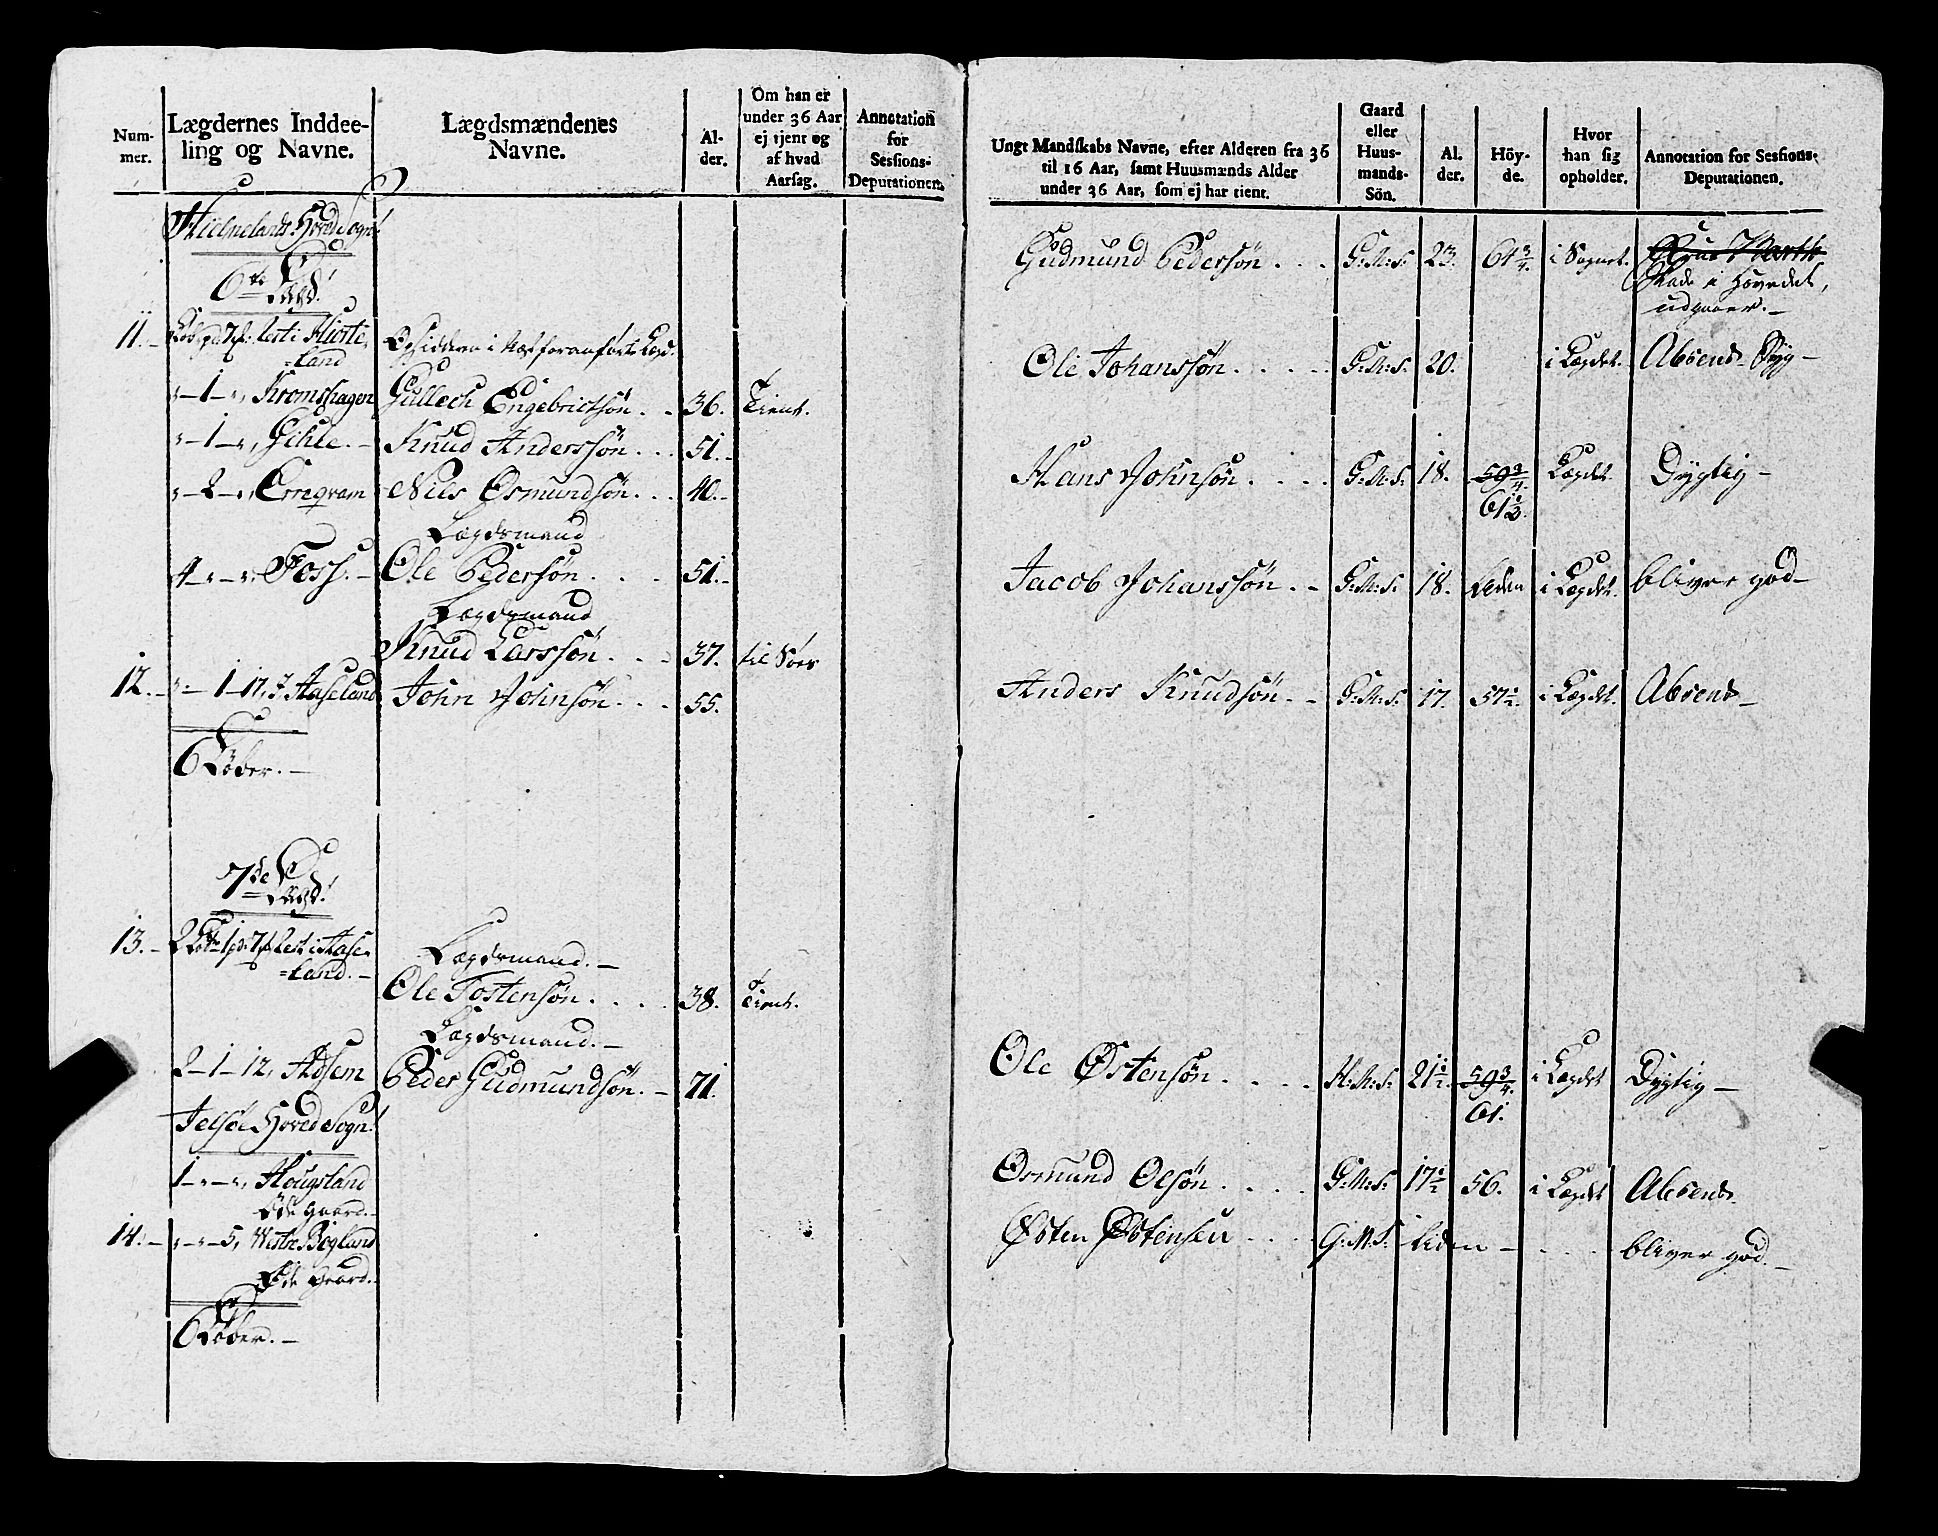 Num-
mer.
Lægdernes Inddee-
ling og Navne.
Lægdsmændenes
Navne.
Al-
der.
Om han er
under 36 Aar
ej tjent og
af hvad
Aarsag.
Annotation
for
Sessions-
Deputationen.
Hielmelands Hoved Sogn!
6te Lægd!
11.- Rest i Hiorte-
=land Opsiddern i Næst foranførte Lægd.
"-1-", Kromshagen Gullech Engebrictsøn. . . 36. Tient.
"-1-", Gihle.- Knud Anderssøn. . . 51.-
"-2-", Erreqvam Niels Osmundsøn. . . 40.-
Lægdsmand
4-"-", Foss.- Ole Pedersøn. . . 51.-
Lægdsmand
Knud Larssøn. . . 37. til Søes
12.- "-1-17, Aaseland John Johnsøn. . . 55.
6 Løber.-
7de Lægd!
13.- 2 Rest i Aase-
=land.-
Lægdsmand.-
Ole Tostensøn. . . . 38. Tient.
Lægdsmand.-
2-1-12, Adsem Peder Gudmundsøn.- 71.
Jelsøe Hoved Sogn!
1-"-", Hougsland
Øde Gaard.-
14.- "-"-5, Westre Bogland
Øde Gaard.-
6 Løber.-
Ungt Mandskabs Navne, efter Alderen fra 36
til 16 Aar, samt Huusmænds Alder
under 36 Aar, som ej har tient.
Gaard
eller
Huus-
mands-
Sön.
Al.
der.
Höy-
de.
Hvor
han sig
opholder.
Annotation for Sessions-
Deputationen.
Gudmund Pedersøn . . . G:M:S: 23. 64 3/4. i Sognet.
Skade i Hovedet,
udgaaer.-
Ole Johanssøn. . . . . G:M:S: 20. i Lægdet. Absend. Syg-
Hans Johnsøn. . . . G:M:S: 18. 59 3/4. Lægdet. Dygtig-
61 1/2.
Jacob Johanssøn . - G:M:S: 18. Liden i Lægdet. bliver god-
Anders Knudsøn. - G:M:S: 17. 57 1/2. i Lægdet. Absend-
Ole Østensøn. . . . H:M:S: 21 1/2. 59 3/4. i Lægdet Dygtig-
61.
Osmund Olsøn. . . . G:M:S: 17 1/2 56. i Lægdet Absend.
Østen Østensen . . . . G:M:S: liden - . . . bliver god.-